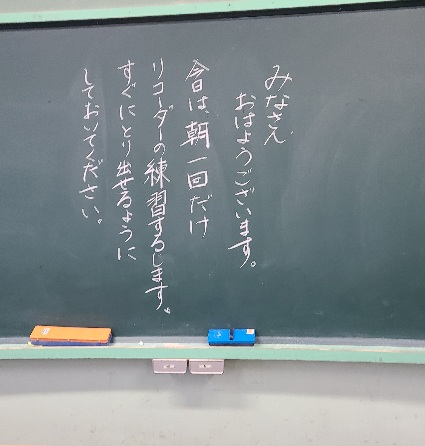 みなさん
おはようございます。
今日は、朝一回だけ
リコーダーの練習するします。
すぐにとり出せるように
しておいてください。